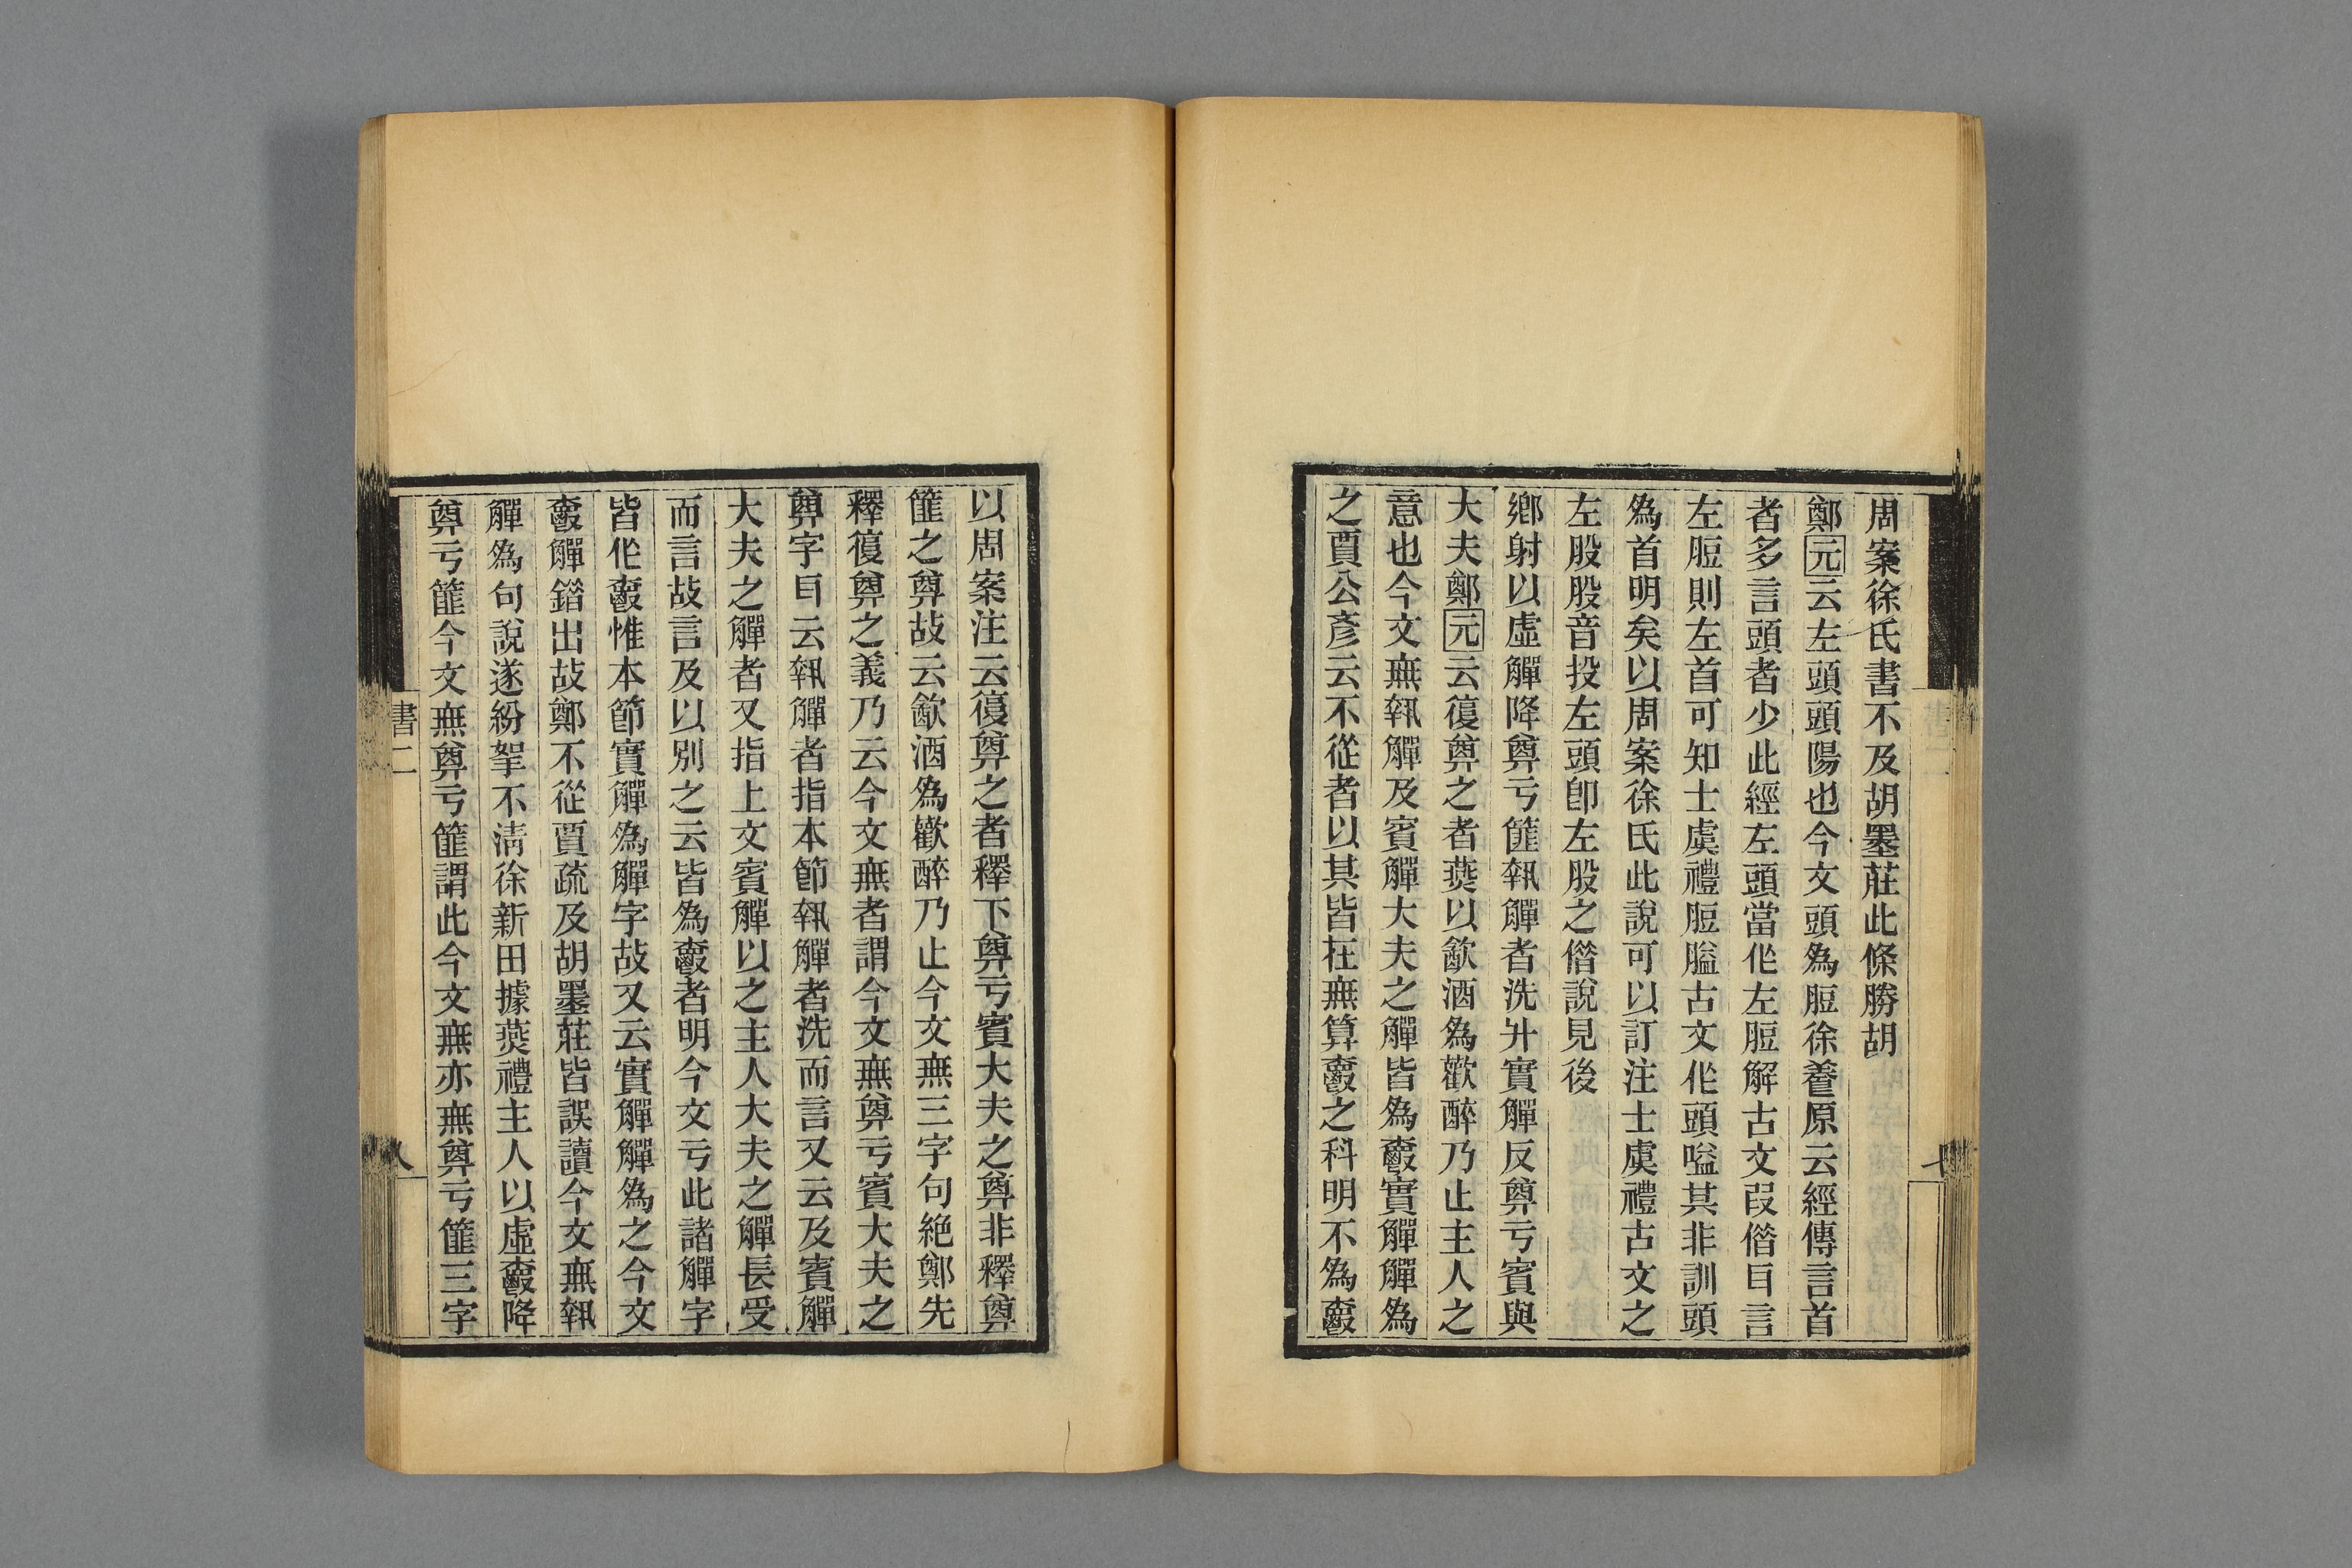 周案徐氏書不及胡墨莊此條勝胡
鄭元云左頭頭陽也今文頭為脰徐養原云經傳言首
者多言頭者少此經左頭當作左脰解古文叚借㠯言
左脰則左首可知士虞禮脰膉古文作頭嗌其非訓頭
為首明矣以周案徐氏此說可以訂注士虞禮古文之
左股股音投左頭卽左股之借說見後
鄉射以虛觶降尊亏篚執觶者洗升實觶反尊亏賓與
大夫鄭元云復尊之者燕以飮酒為歡醉乃止主人之
意也今文無執觶及賓觶大夫之觶皆為爵實觶觶為
之賈公彥云不從者以其皆在無算爵之科明不為爵
以周案注云復尊之者釋下尊亏賓大夫之尊非釋尊
篚之尊故云飮酒為歡醉乃止今文無三字句絕鄭先
釋復尊之義乃云今文無者謂今文無尊亏賓大夫之
尊字㠯云執觶者指本節執觶者洗而言又云及賓觶
大夫之觶者又指上文賓觶以之主人大夫之觶長受
而言故言及以別之云皆為爵者明今文亏此諸觶字
皆作爵惟本節實觶為觶字故又云實觶觶為之今文
爵觶錯出故鄭不從賈疏及胡墨莊皆誤讀今文無執
觶為句說遂紛挐不淸徐新田據燕禮主人以虛爵降
尊亏篚今文無尊亏篚謂此今文無亦無尊亏篚三字
書二
八
七